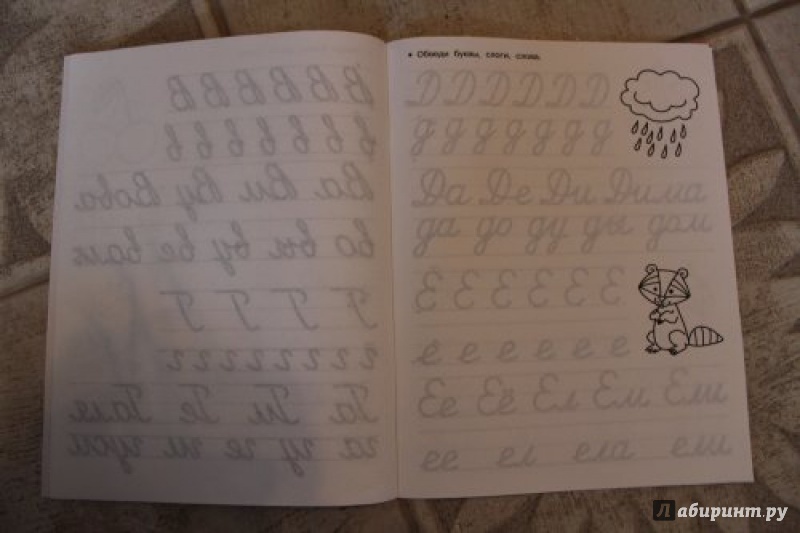 В В В В В В
в в в в в в в
Ва Ви Ву Вова
во вы ву ве волк
Г Г Г Г
г г г г г г г
Га Ги Ге Галя
га гу ге ги гуси
• Обведи буквы, слоги, слова.
Д Д Д Д Д Д
д д д д д д д
Да Де Ди Дима
да до ду ды дом
Е Е Е Е Е Е
е е е е е е
Ее Её Ел Ем Ели
ее ел ела ели
Лабиринт.ру